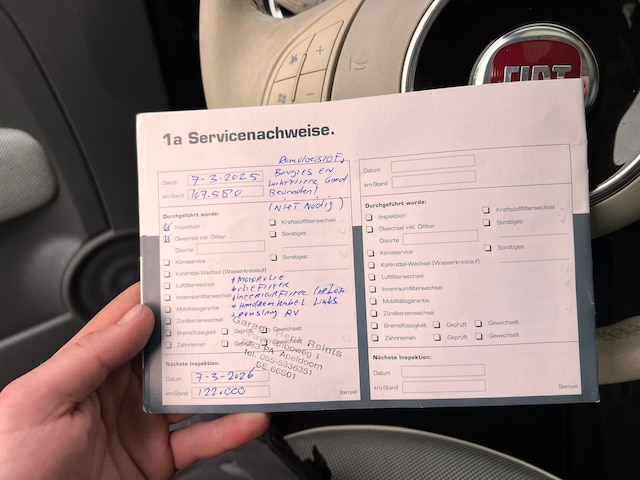 FIAT
1a Servicenachweise.
Remvloeistof,
Bougies en
Luchtfilter Goed
Bevonden!
(Niet Nodig)
Datum 7-3-2025
km-Stand 107.580
Durchgeführt wurde:
Inspektion
Ölwechsel inkl. Ölfilter
Ölsorte
Klimaservice
Kühlmittel-Wechsel (Wasserkreislauf)
Luftfilterwechsel
Innenraumfilterwechsel
Mobilitätsgarantie
Zündkerzenwechsel
Bremsflüssigkeit Geprüft Gewechselt
Zahnriemen
Kraftstofffilterwechsel
Sonstiges:
+ Motorolie
+ Oliefilter
+ Interieurfilter
+ Handremkabel Links
RV
Garage Henk Reints
1
PA Apeldoorn
tel. 055-5336351
Nächste Inspektion:
Datum 7-3-2026
km-Stand 122.000
Stempel
Datum
km-Stand
Durchgeführt wurde:
Inspektion
Ölwechsel inkl. Ölfilter
Ölsorte
Klimaservice
Kühlmittel-Wechsel (Wasserkreislauf)
Luftfilterwechsel
Innenraumfilterwechsel
Mobilitätsgarantie
Zündkerzenwechsel
Bremsflüssigkeit Geprüft Gewechselt
Zahnriemen Geprüft Gewechselt
Kraftstofffilterwechsel
Sonstiges:
Sonstiges:
Nächste Inspektion:
Datum
km-Stand
Stempel